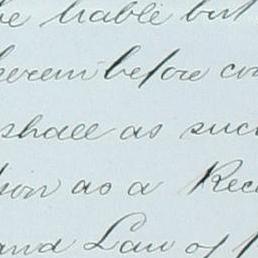 be liable but
herein before con
shall as such
son as a Rec
and Law of